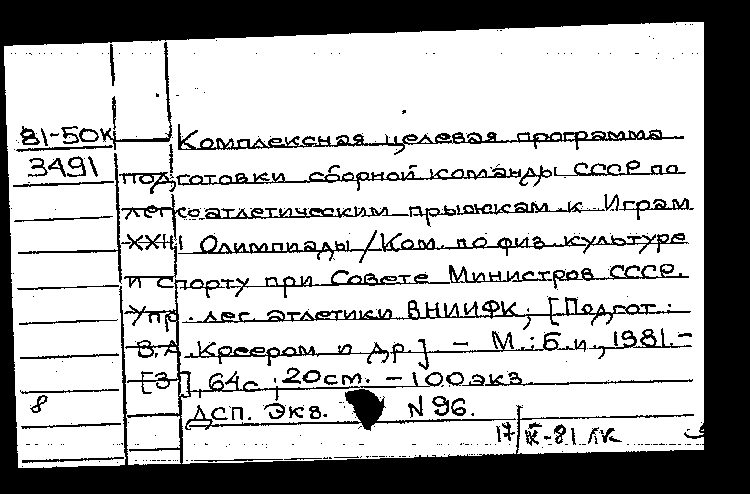 81-50К
3491
Комплексная целевая программа
подготовки сборной команды СССР по
легкоатлетическим прыжкам к Играм
XXIII Олимпиады/Ком. по физ. культуре
и спорту при Совете Министров СССР.
Упр. лег. атлетики ВНИИФК; [Подгот.:
В.А. Креером и др.] - М.: Б.и., 1981. -
[3], 64с.; 20 см. - 100 экз.
ДСП. Экз. N 96.
8
17/IX-81 ЛК